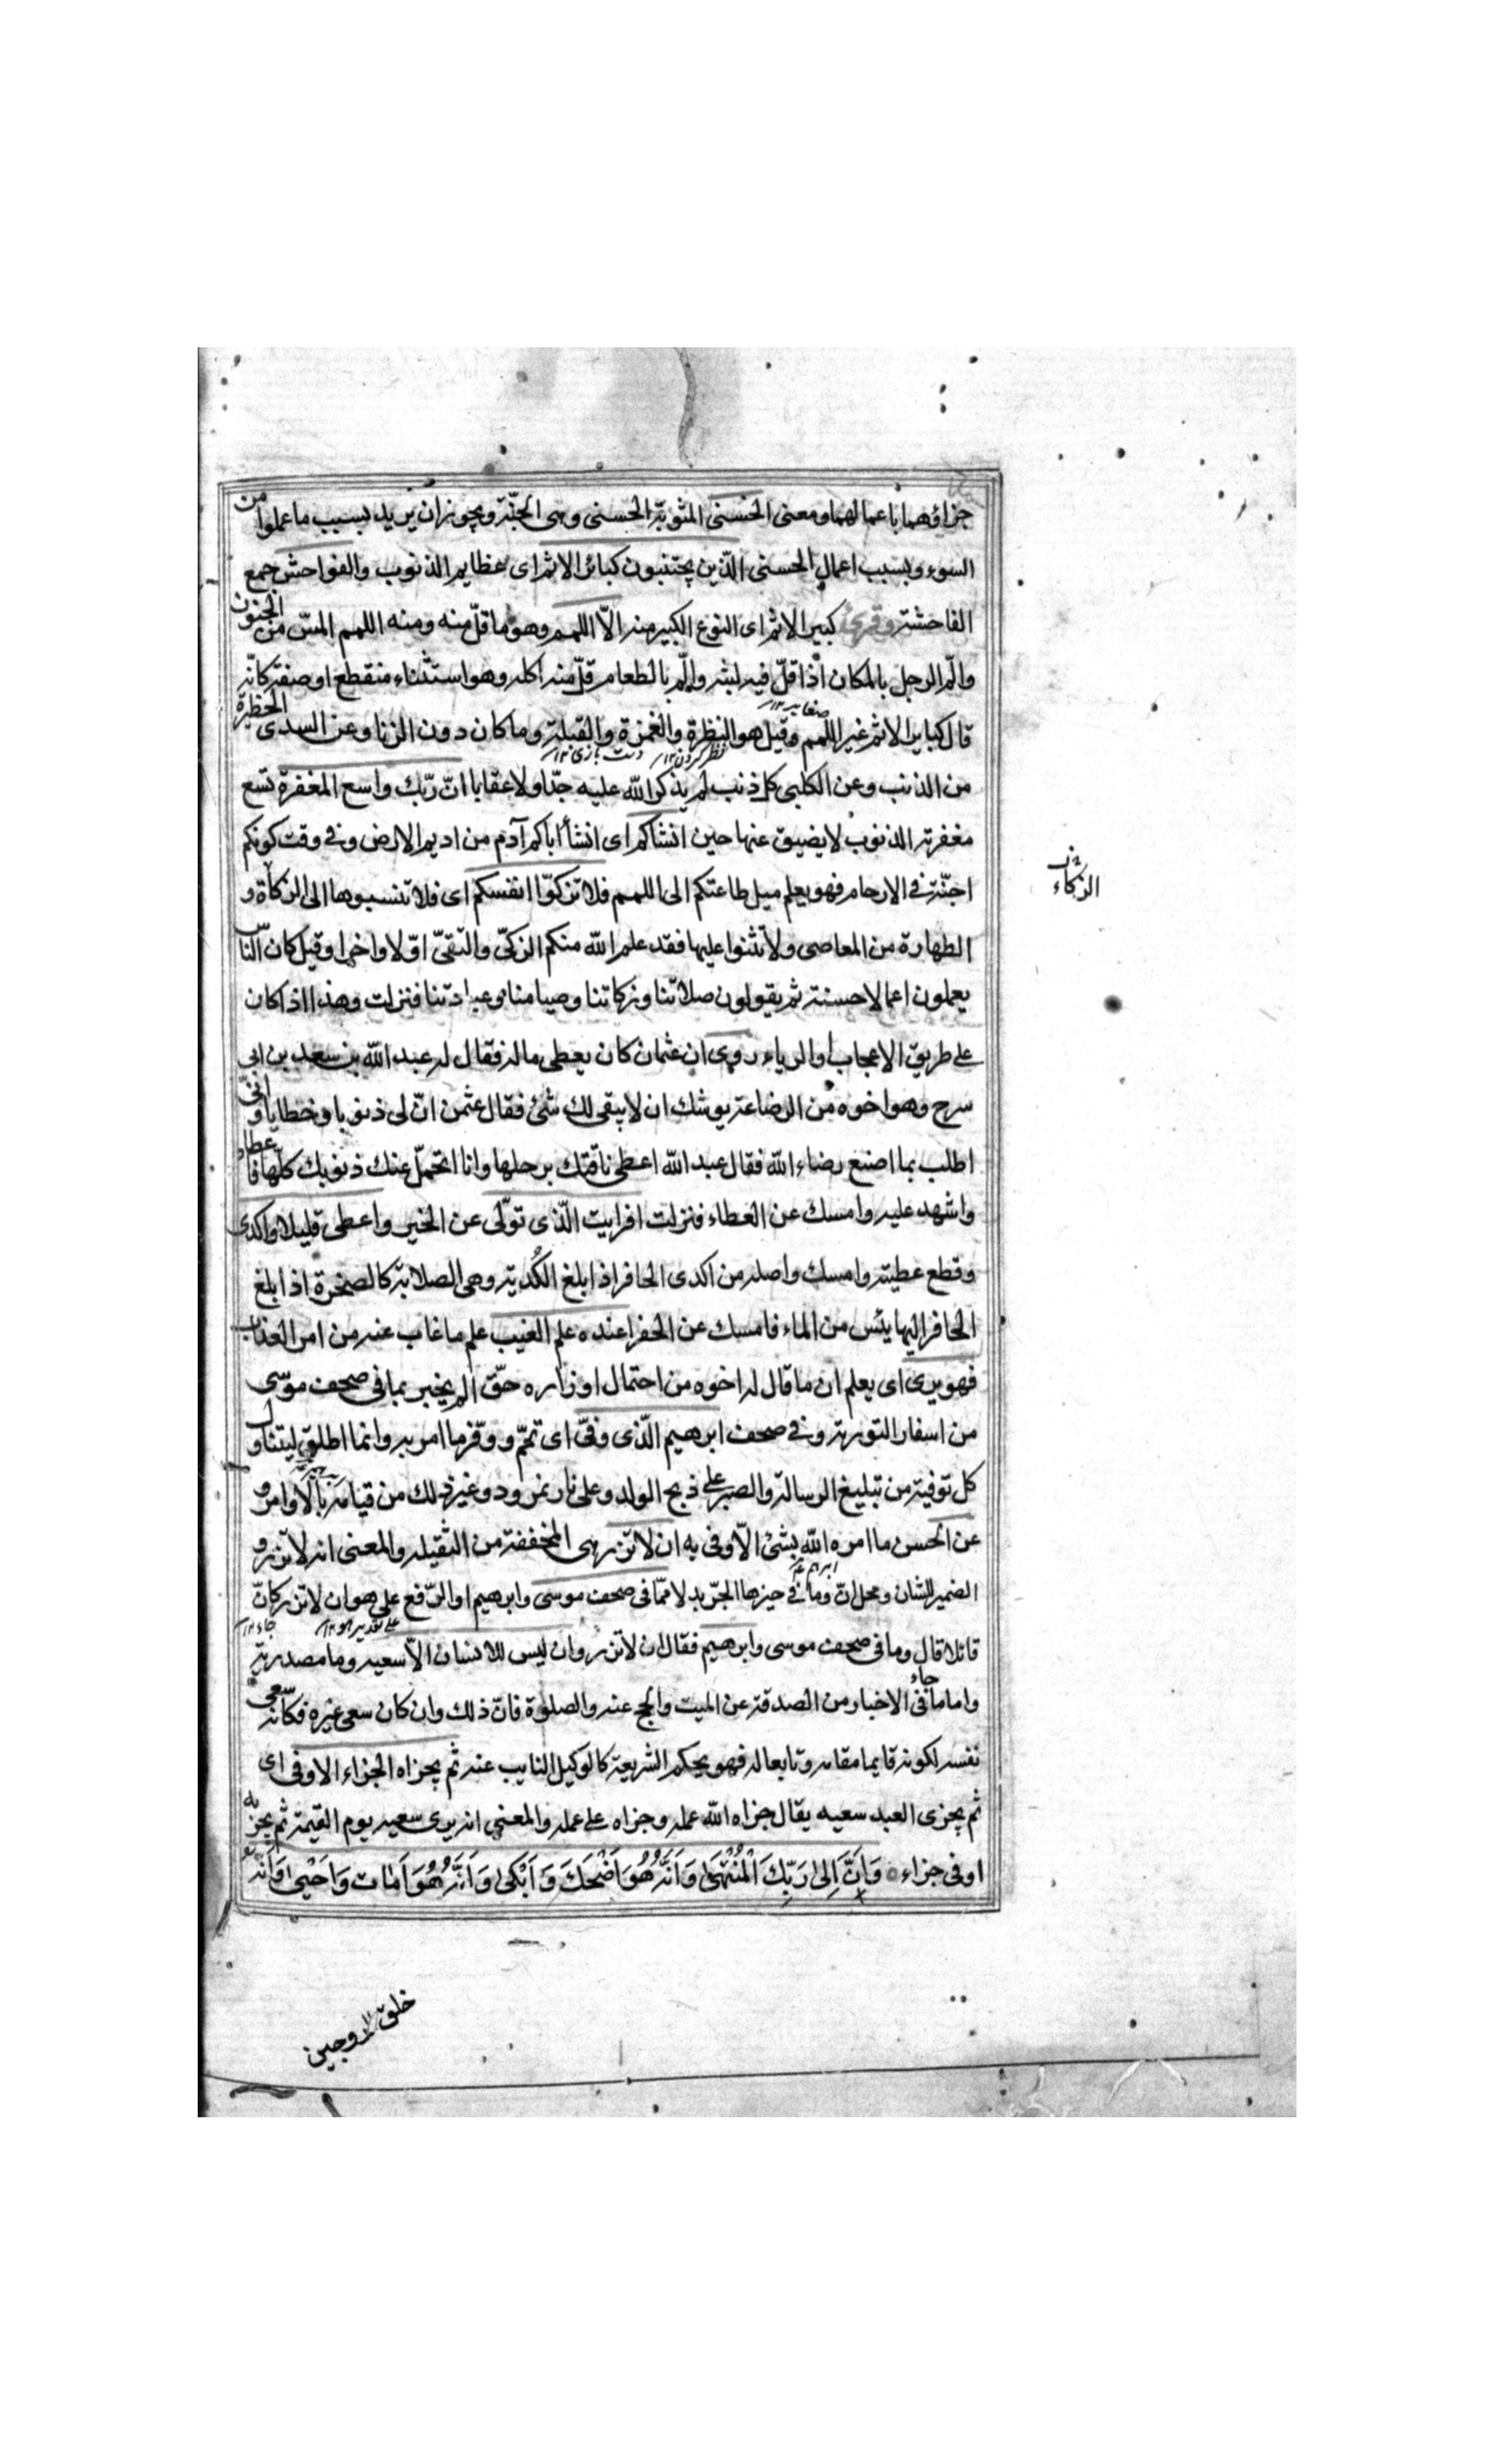 جزاؤهما باعمالهما ومعنى الحسنى المثوبة الحسنى وهى الجنّة ويجوز ان يريد بسبب ما عملوا من
السوء وبسبب اعمال الحسنى الّذين يجتنبون كبائر الاثم اى عظايم الذنوب والفواحش جمع
الفاحشة وقرئ كبير الاثم اى النوع الكبير منه الاّ اللمم وهو ما قلّ منه ومنه اللمم المسّ من الجنون
والّم الرجل بالمكان اذا قلّ فيه لبثه والّم بالطعام قلّ منه اكله وهو استثناء منقطع او صفة كانّه
قال كباير الاثم غير اللمم وقيل هو النظرة والغمزة والقبلة وما كان دون الزنا وعن السدى الخطرة
صغاير ١٢
نظر كردن ١٢ دست بازى ١٢
من الذنب وعن الكلبى كل ذنب لم يذكر الله عليه حدّا ولا عقابا انّ ربّك واسع المغفرة تسع
مغفرته الذنوب لا يضيق عنها حين انشاكم اى انشأ اباكم آدم من اديم الارض وفى وقت كونكم
اجنّة فى الارحام فهو يعلم ميل طاعتكم الى اللمم فلا تزكوّا انفسكم اى فلا تنسبوها الى الزكاة و
الزكاء
الطهارة من المعاصى ولا تثنوا عليها فقد علم الله منكم الزكىّ والتقىّ اوّلا واخرا وقيل كان النّاس
يعملون اعمالا حسنة ثم يقولون صلاتنا وزكاتنا وصيامنا وعبادتنا فنزلت وهذا اذا كان
على طريق الاعجاب او الرياء روى ان عثمان كان يعطى ماله فقال له عبد الله بن سعد بن ابى
سرح وهو اخوه من الرضاعة يوشك ان لا يبقى لك شئ فقال عثمن انّ لى ذنوبا وخطايا وانّى
اطلب بما اصنع رضاء الله فقال عبد الله اعطى ناقتك برحلها وانا اتحمّل عنك ذنوبك كلّها فاعطاه
واشهد عليه وامسك عن العطاء فنزلت افرايت الّذى تولّى عن الخير واعطى قليلا واكدى
وقطع عطيته وامسك واصله من اكدى الحافر اذا بلغ الكُدية وهى الصلابة كالصخرة اذا بلغ
الحافر اليها يئس من الماء فامسك عن الحفر اعنده علم الغيب علم ما غاب عنه من امر العذاب
فهو يرى اى يعلم ان ما قال له اخوه من احتمال اوزاره حقّ الم يخبر بما فى صحف موسى
من اسفار التورية وفى صحف ابرهيم الّذى وفىّ اى تمّم ووفّر ما امر به وانما اطلق ليتناول
كل توفية من تبليغ الرسالة والصبر على ذبح الولد وعلى نار نمرود وغير ذلك من قيامه بالاوامر و
عن الحسن ما امره الله بشئ الاّ وفى به ان لا تزر هى المخففة من الثقيلة والمعنى انه لا تزر و
الضمير للشان ومحل انّ وما فى حيزها الجرّ بدلا ممّا فى صحف موسى وابرهيم او الرّفع على هو ان لا تزر كانّ
على تقدير هو ١٢
قائلا قال وما فى صحف موسى وابرهيم فقال ان لا تزر وان ليس للانسان الاّ سعيه وما مصدرية
واما ما جاء فى الاخبار من الصدقة عن الميت والحج عنه والصلوة فانّ ذلك وان كان سعى غيره فكانّه سعى
نفسه لكونه قايما مقامه وتابعا له فهو بحكم الشريعة كالوكيل النايب عنه ثم يجزاه الجزاء الاوفى اى
ثم يجزى العبد سعيه يقال جزاه الله عمله وجزاه على عمله والمعنى انه يرى سعيه يوم القيمة ثم يجزيه
اوفى جزاء ٥ وَاَنَّ اِلىٰ رَبِّكَ الْمُنْتَهىٰ وَاَنَّهُ هُوَ اَضْحَكَ وَ اَبْكىٰ وَ اَنَّهُ هُوَ اَمَاتَ وَ اَحْيىٰ وَاَنَّهُ
خلق الزوجين